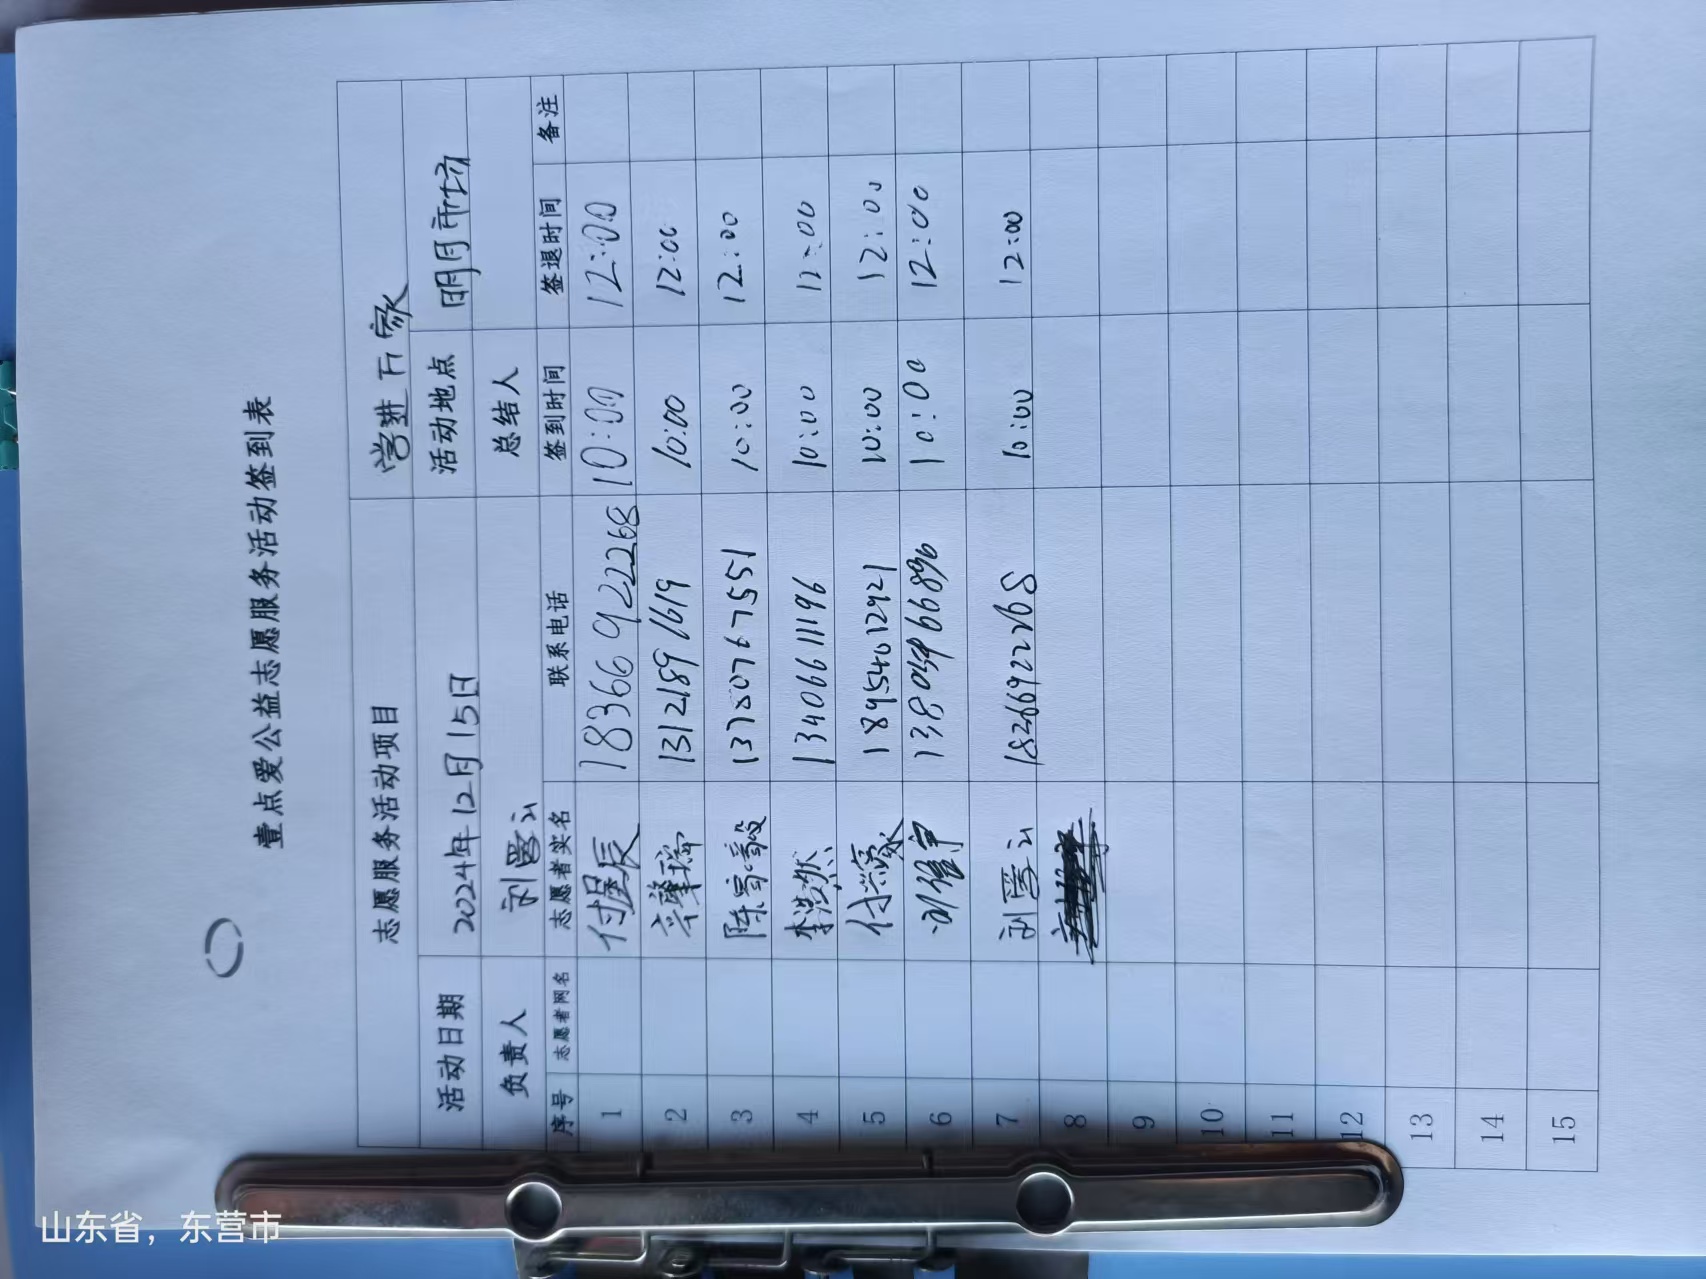 壹点爱公益志愿服务活动签到表
志愿服务活动项目 学进万家
活动日期 2024年12月15日 活动地点 明月市场
负责人 总结人
序号 志愿者网名 志愿者实名 联系电话 签到时间 签退时间 备注
1 付星辰 18366922268 10:00 12:00
2 13121891619 10:00 12:00
3 13780767551 10:00 12:00
4 李浩然 13406611196 10:00 12:00
5 18954012921 10:00 12:00
6 10:00 12:00
7 10:00 12:00
8
9
10
11
12
13
14
15
山东省，东营市